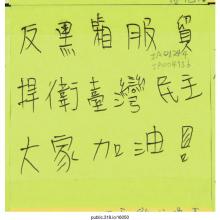 反黑箱服貿
捍衛臺灣民主
大家加油
public.318.io/16050